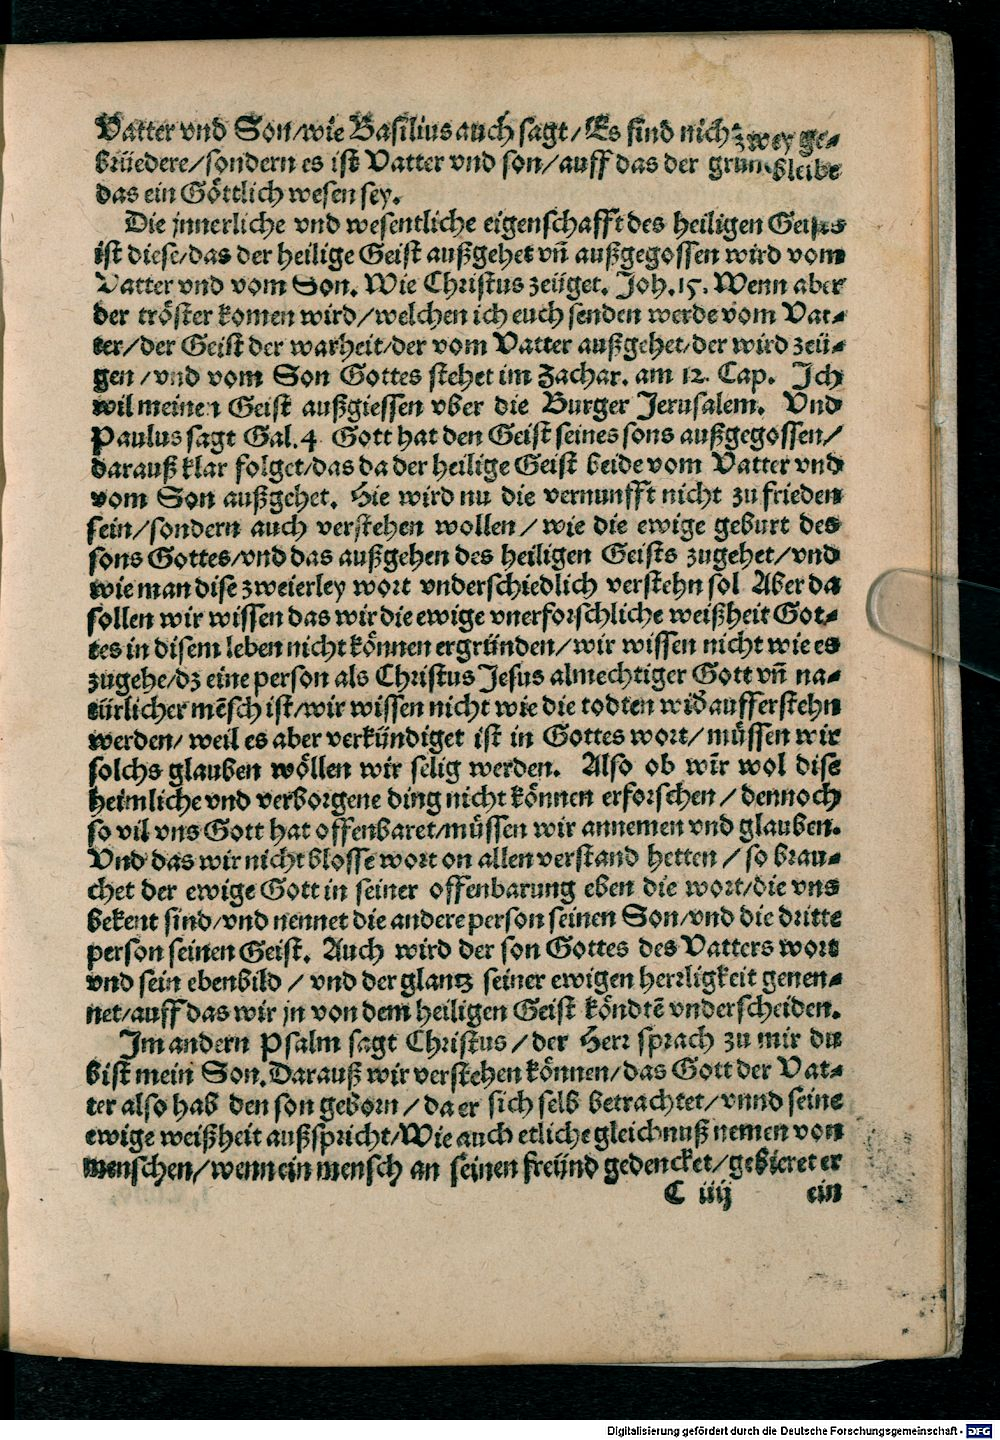 Vatter vnd Son/wie Basilius auch sagt/Es sind nicht zwey ge-
brüedere/sondern es ist Vatter vnd son/auff das der grund bleibe
das ein Göttlich wesen sey.
Die jnnerliche vnd wesentliche eigenschafft des heiligen Geists
ist diese/das der heilige Geist außgehet vñ außgegossen wird vom
Vatter vnd vom Son. Wie Christus zeüget. Joh. 15. Wenn aber
der tröster komen wird/welchen ich euch senden werde vom Vat-
ter/der Geist der warheit/der vom Vatter außgehet/der wird zeü-
gen/vnd vom Son Gottes stehet im Zachar. am 12. Cap. Ich
wil meinen Geist außgiessen vber die Burger Jerusalem. Vnd
Paulus sagt Gal. 4 Gott hat den Geist seines sons außgegossen/
darauß klar folget/das da der heilige Geist beide vom Vatter vnd
vom Son außgehet. Hie wird nu die vernunfft nicht zu frieden
sein/sondern auch verstehen wollen/wie die ewige geburt des
sons Gottes/vnd das außgehen des heiligen Geists zugehet/vnd
wie man dise zweierley wort vnderschiedlich verstehn sol Aber da
sollen wir wissen das wir die ewige vnerforschliche weißheit Got-
tes in disem leben nicht können ergründen/wir wissen nicht wie es
zugehe/dz eine person als Christus Jesus almechtiger Gott vñ na-
türlicher mẽsch ist/wir wissen nicht wie die todten wid̃ aufferstehn
werden/weil es aber verkündiget ist in Gottes wort/müssen wir
solchs glauben wöllen wir selig werden. Also ob wir̃ wol dise
heimliche vnd verborgene ding nicht können erforschen/dennoch
so vil vns Gott hat offenbaret/müssen wir annemen vnd glauben.
Vnd das wir nicht blosse wort on allen verstand hetten/so brau-
chet der ewige Gott in seiner offenbarung eben die wort/die vns
bekent sind/vnd nennet die andere person seinen Son/vnd die dritte
person seinen Geist. Auch wird der son Gottes des Vatters wort
vnd sein ebenbild/vnd der glantz seiner ewigen herrligkeit genen-
net/auff das wir jn von dem heiligen Geist köndtẽ vnderscheiden.
Im andern Psalm sagt Christus/der Herr sprach zu mir du
bist mein Son. Darauß wir verstehen können/das Gott der Vat-
ter also hab den son geborn/da er sich selb betrachtet/vnnd seine
ewige weißheit außspricht/Wie auch etliche gleichnuß nemen von
menschen/wenn ein mensch an seinen freünd gedencket/gebieret er
C iiij ein
Digitalisierung gefördert durch die Deutsche Forschungsgemeinschaft - DFG